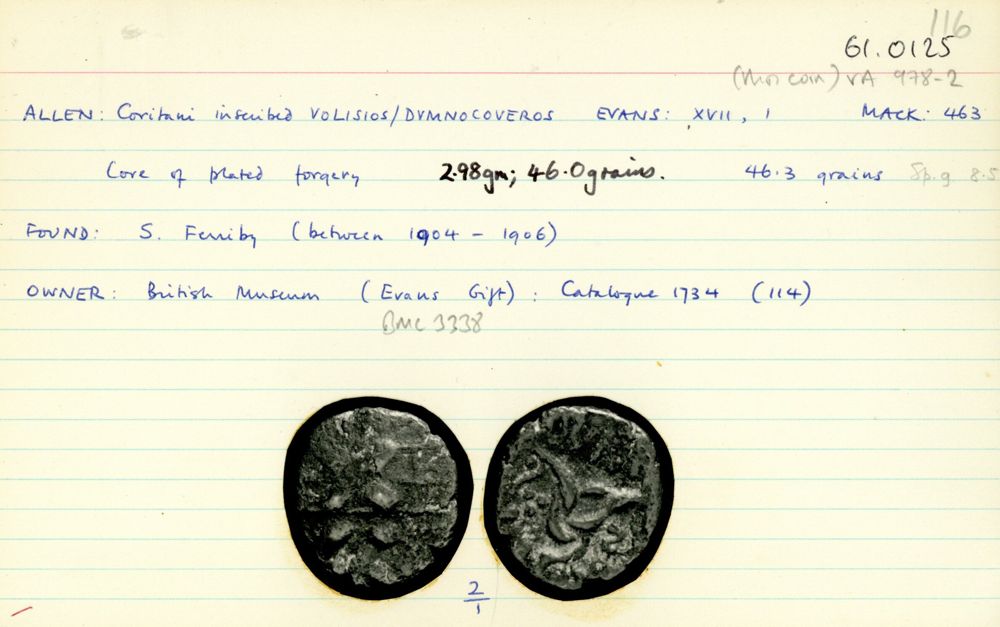 116
61.0125
(this coin) VA 978-2
ALLEN: Coritani inscribed VOLISIOS/DVMNOCOVEROS EVANS: XVII, 1 MACK: 463
Core of plated forgery 2.98gm; 46.0grains. 46.3 grains Sp.g. 8.5
FOUND: S. Ferriby (between 1904 - 1906)
OWNER: British Museum (Evans Gift): Catalogue 1734 (114)
BMC 3338
2/1